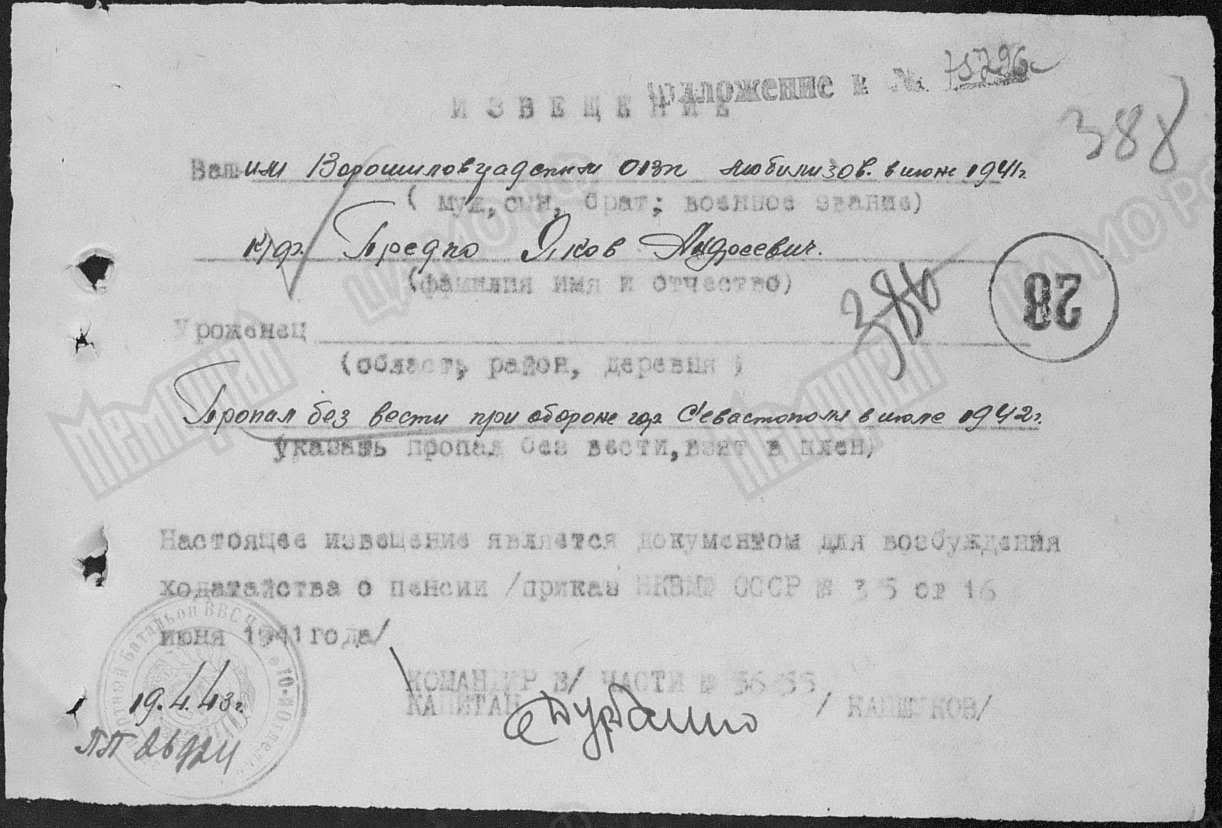 приложение к № 75296с
ИЗВЕЩЕНИЕ
388
Ваш им Ворошиловградским ОВК мобилизов. в июне 1941г
( муж, сын, брат; военное звание)
к/ф Предко Яков Андреевич.
(фамилия имя и отчество)
386
28
Уроженец
(область, район, деревня )
Пропал без вести при обороне гор Севастополя в июле 1942г.
указать пропал без вести, взят в плен)
Настоящее извещение является документом для возбуждения
ходатайства о пенсии /приказ НКВМФ СССР № 335 от 16
июня 1941 года/
КОМАНДИР В/ ЧАСТИ № 3655
КАПИТАН / КАШЛУКОВ/
19.4.43г.
МЕМОРИАЛ
МЕМОРИАЛ
ЦАМО РФ
ЦАМО РФ